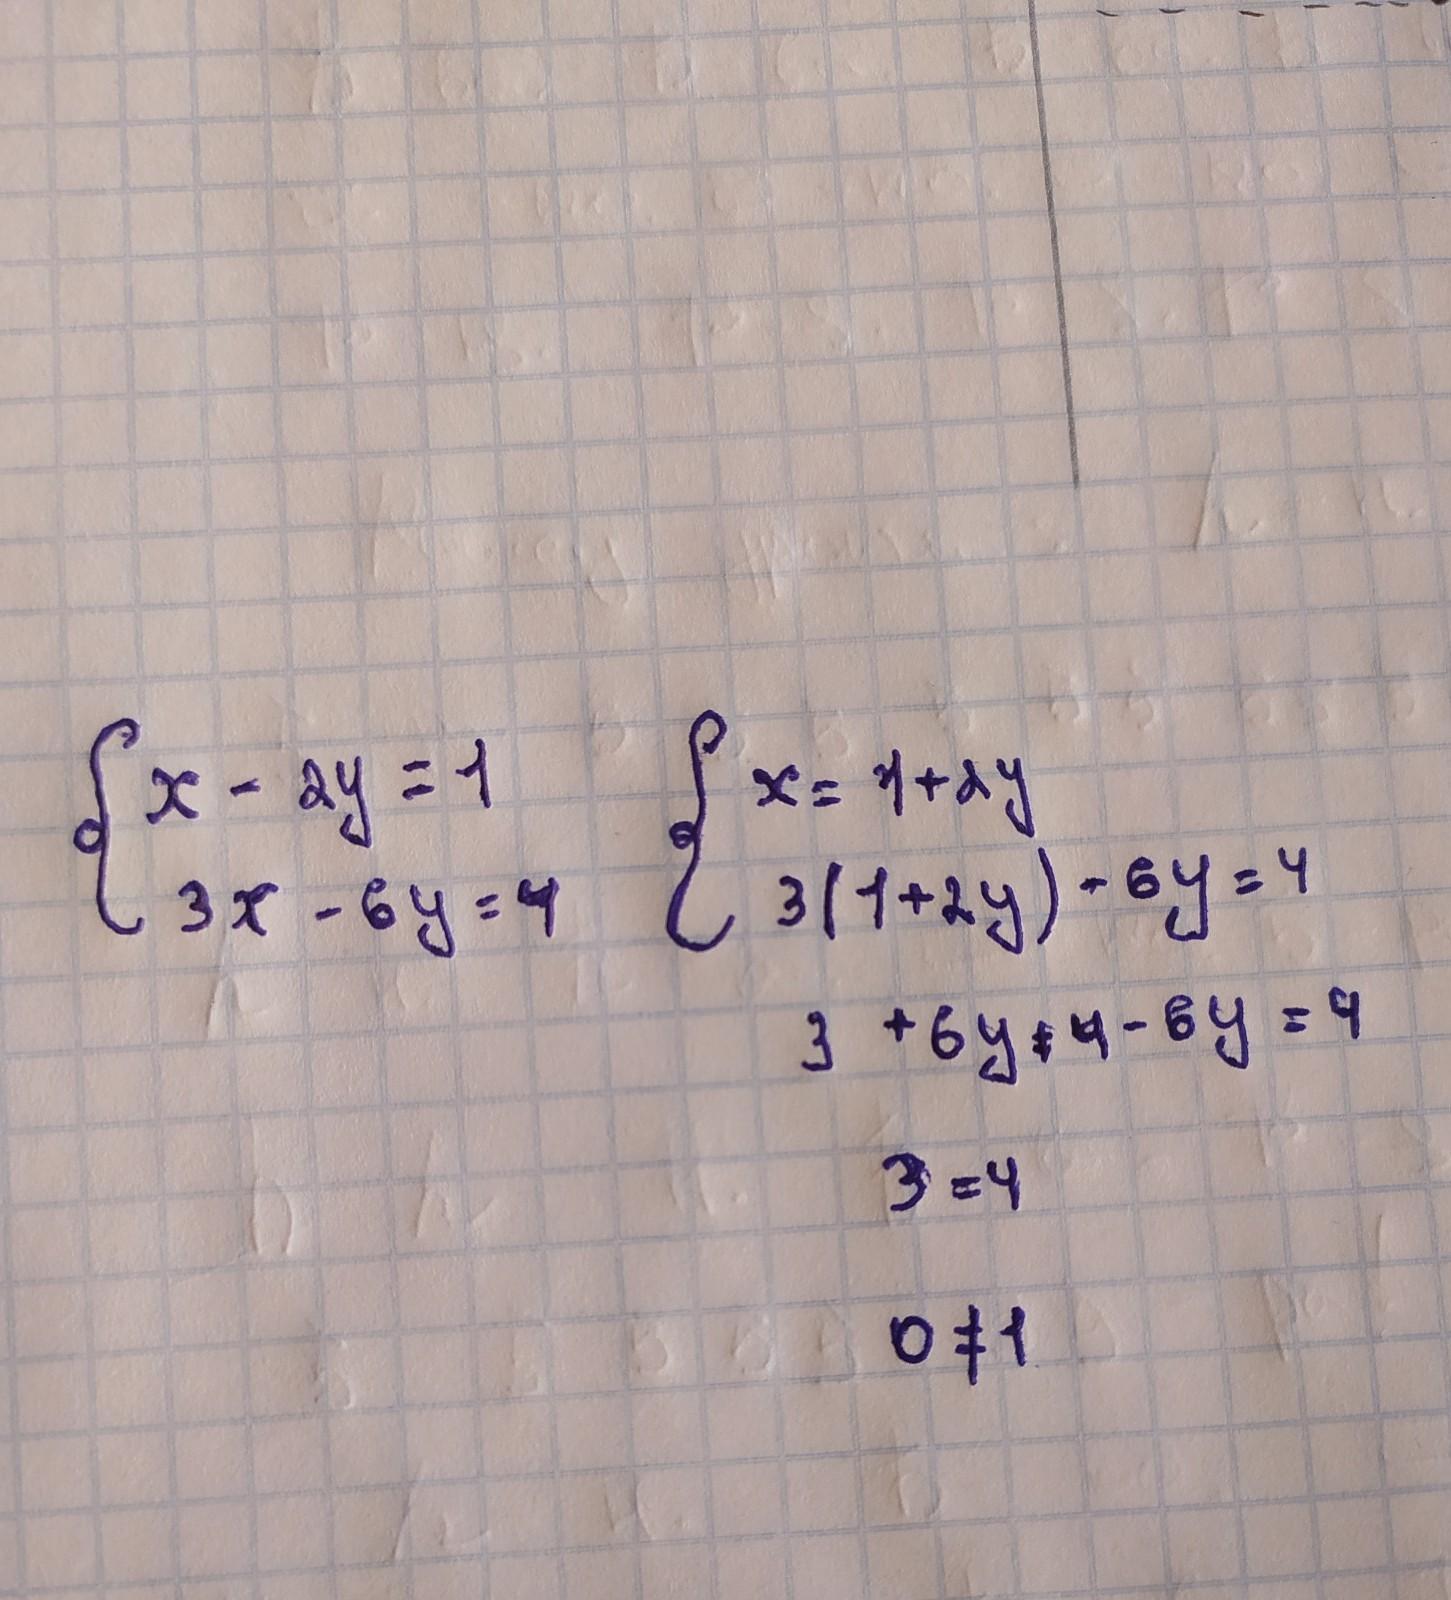 { x - 2y = 1
3x - 6y = 4
{ x = 1+2y
3(1+2y) - 6y = 4
3 + 6y + 4 - 6y = 4
3 = 4
0 ≠ 1